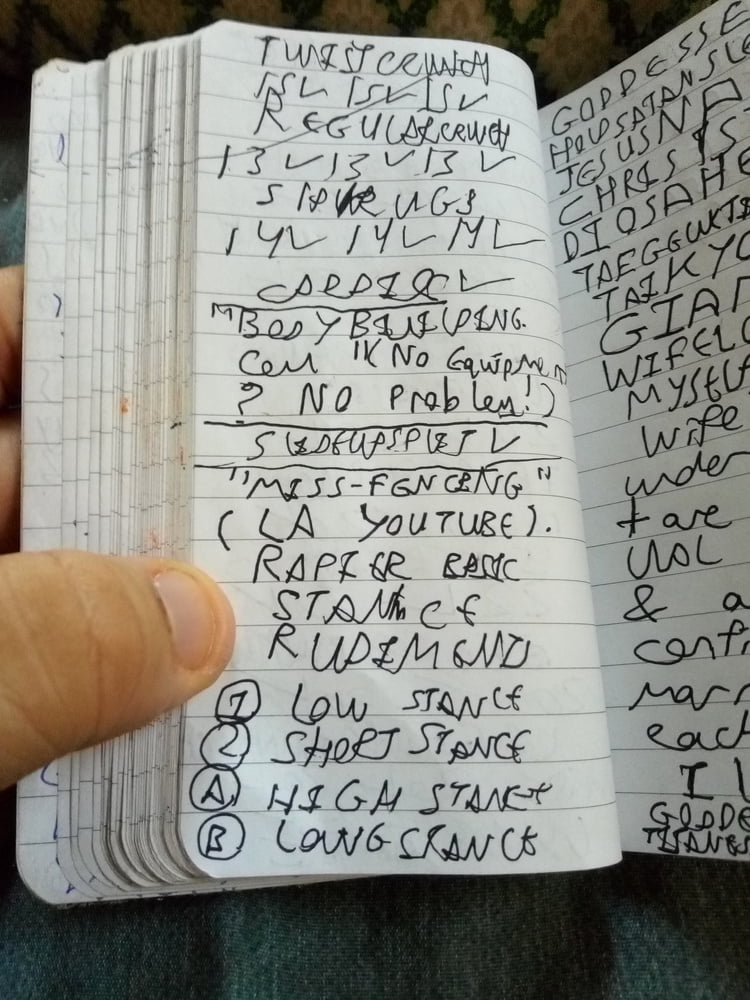 TWIST CRUNCH
15✓ 15✓ 15✓
REGULAR CRUNCH
13 ✓ 13 ✓ 13 ✓
SHRUGS
14✓ 14✓ 14✓
CARDIO ✓
"BODYBUILDING.
COM "K NO EQUIPMEN
? NO Problem!)
SIDEUPSPLIT ✓
"MISS-FENCING"
(LA YOUTUBE).
RAPIER BASIC
STANCE
RUDIMEND
① LOW STANCE
② SHORT STANCE
Ⓐ HIGH STANCE
Ⓑ LONG STANCE
GODDESSE
JESUS
CHRIS
DIOSAHE
TAEGGUKI
TAIKYO
GIAN
WIFEL
MYSELF
Wife
under
+ are
UAL
& a
confi
marr
each
I
GODDE